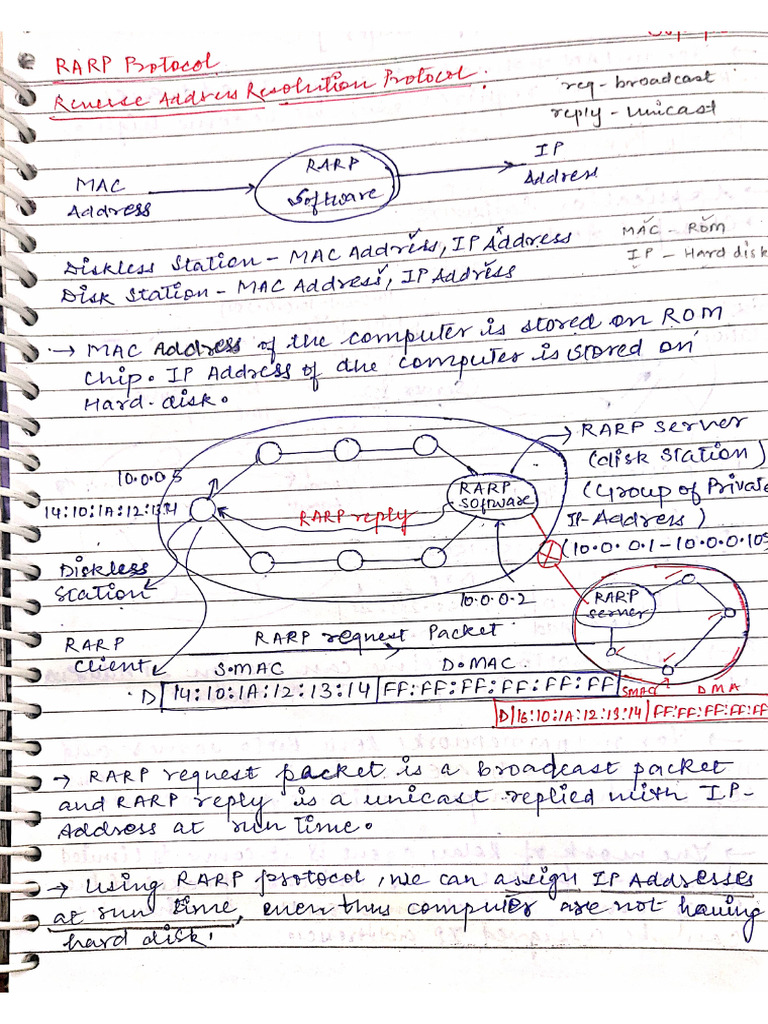 RARP Protocol
Reverse Address Resolution Protocol.
req - broadcast
reply - unicast
MAC
Address
RARP
Software
IP
Address
Diskless Station - MAC Address, IP Address
Disk Station - MAC Address, IP Address
MAC - ROM
IP - Hard disk
→ MAC Address of the computer is stored on ROM
chip. IP Address of the computer is stored on
Hard-disk.
10.0.0.5
14:10:1A:12:13:14
RARP
software
RARP reply
RARP server
(disk station)
(Group of Private
IP-Address)
(10.0.0.1-10.0.0.10
Diskless
station
10.0.0.2
RARP
server
RARP
client
RARP request Packet
S.MAC D.MAC
D 14:10:1A:12:13:14 FF:FF:FF:FF:FF:FF
SMAC DMA
D 16:10:1A:12:13:14 FF:FF:FF:FF:FF
→ RARP request packet is a broadcast packet
and RARP reply is a unicast replied with IP-
Address at run time.
→ Using RARP protocol, we can assign IP Addresses
at run time, even thus computer are not having
hard disk.